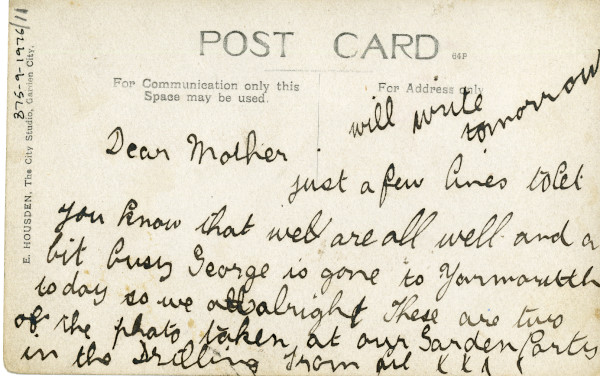 875-9-1976/11
E. HOUSDEN, The City Studio, Garden City.
POST CARD
64P
For Communication only this
Space may be used.
For Address only
will write
tomorrow
Dear Mother
just a few lines to let
you know that well are all well and a
bit busy George is gone to Yarmouth
today so we alright These are two
of the photo taken at our Garden Party
in the Drilling from X X X